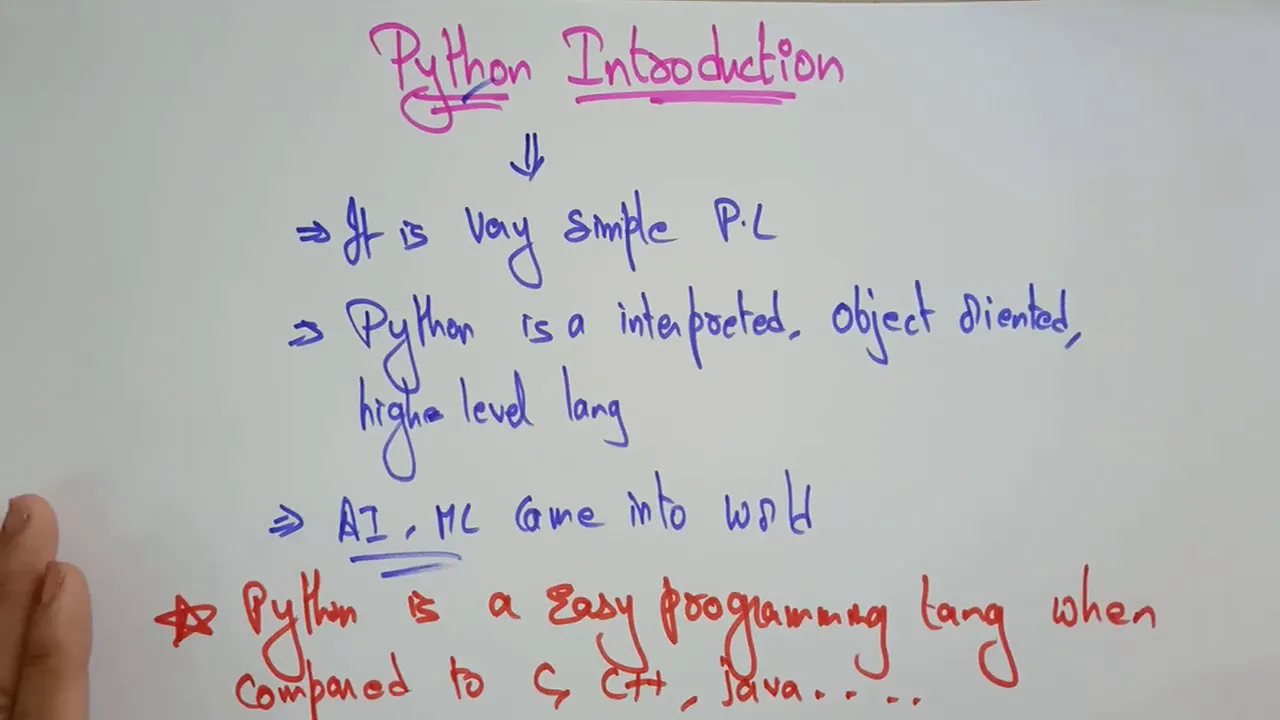 Python Introduction
⇓
⇒ It is very simple P.L
⇒ Python is a interpreted, object oriented,
high level lang
⇒ AI, ML came into world
☆ Python is a Easy programming lang when
compared to C, C++, java.....